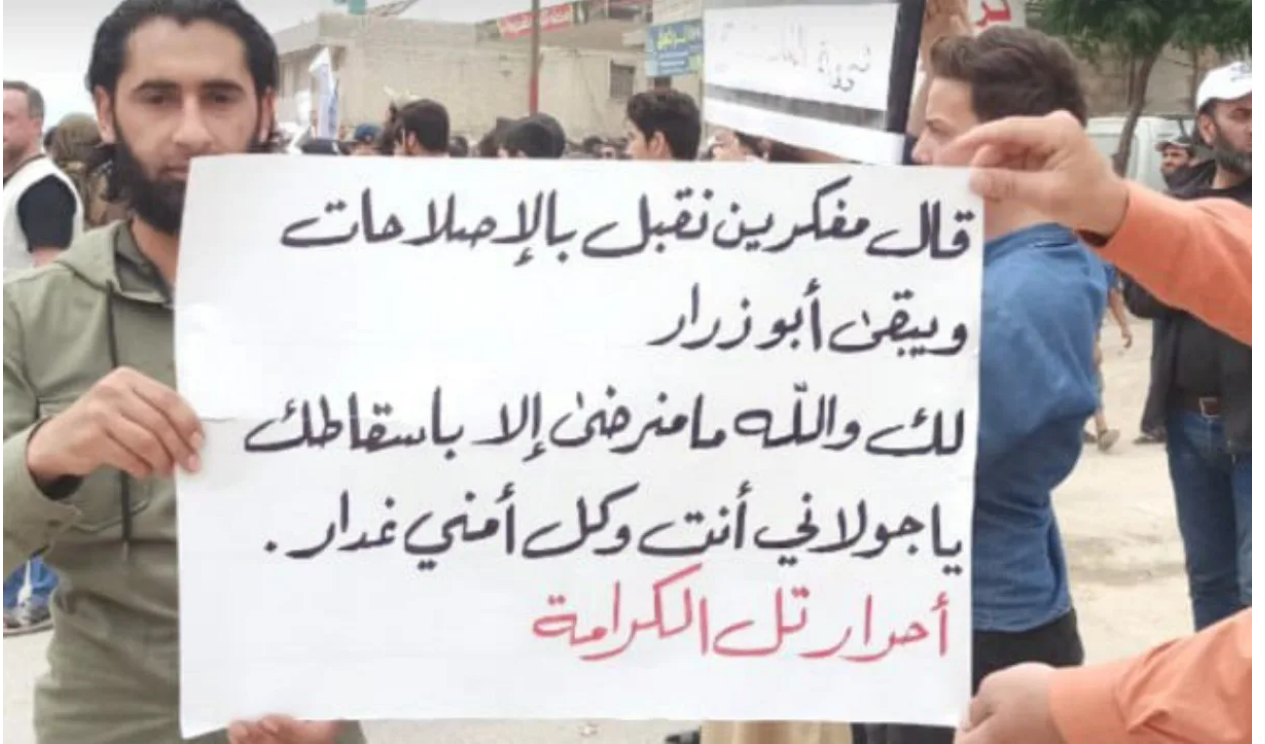 قال مفكرين نقبل بالإصلاحات
ويبقى أبو زرار
لك والله ما منرضى إلا باسقاطك
يا جولاني أنت وكل أمني غدار.
أحرار تل الكرامة